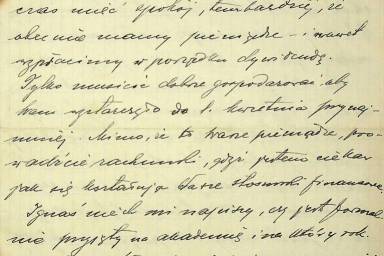 czas mieć spokój, tembardziej, że
obecnie mamy pieniądze - i nawet
w porządku dywidendę.
Tylko musicie dobrze gospodarować, aby
Wam wystarczyło do 1. kwietnia przynaj-
mniej. Mimo, że to Wasze pieniądze, pro-
wadźcie rachunki, gdyż jestem ciekaw
jak się kształtują Wasze stosunki finansowe.
Ignaś niech mi napisze, czy jest formal-
nie przyjęty na akademię i na który rok.